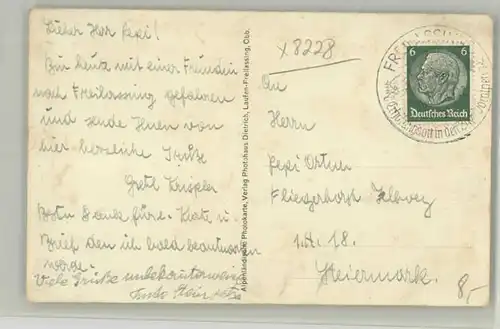 Lieber Herr Pepi!
Bin heute mit einer Freundin
nach Freilassing gefahren
und sende Ihnen von
hier herzliche Grüße
Gretl
Besten Dank für Karte u.
Brief den ich bald beantworten
werde.
Viele Grüße unbekannterweise
Alpenländische Photokarte, Verlag Photohaus Dietrich, Laufen-Freilassing, Obb.
x 8228
An
Herrn
Pepi Ortner
Fliegerhorst
Steiermark.
8,-
6 6
Deutsches Reich